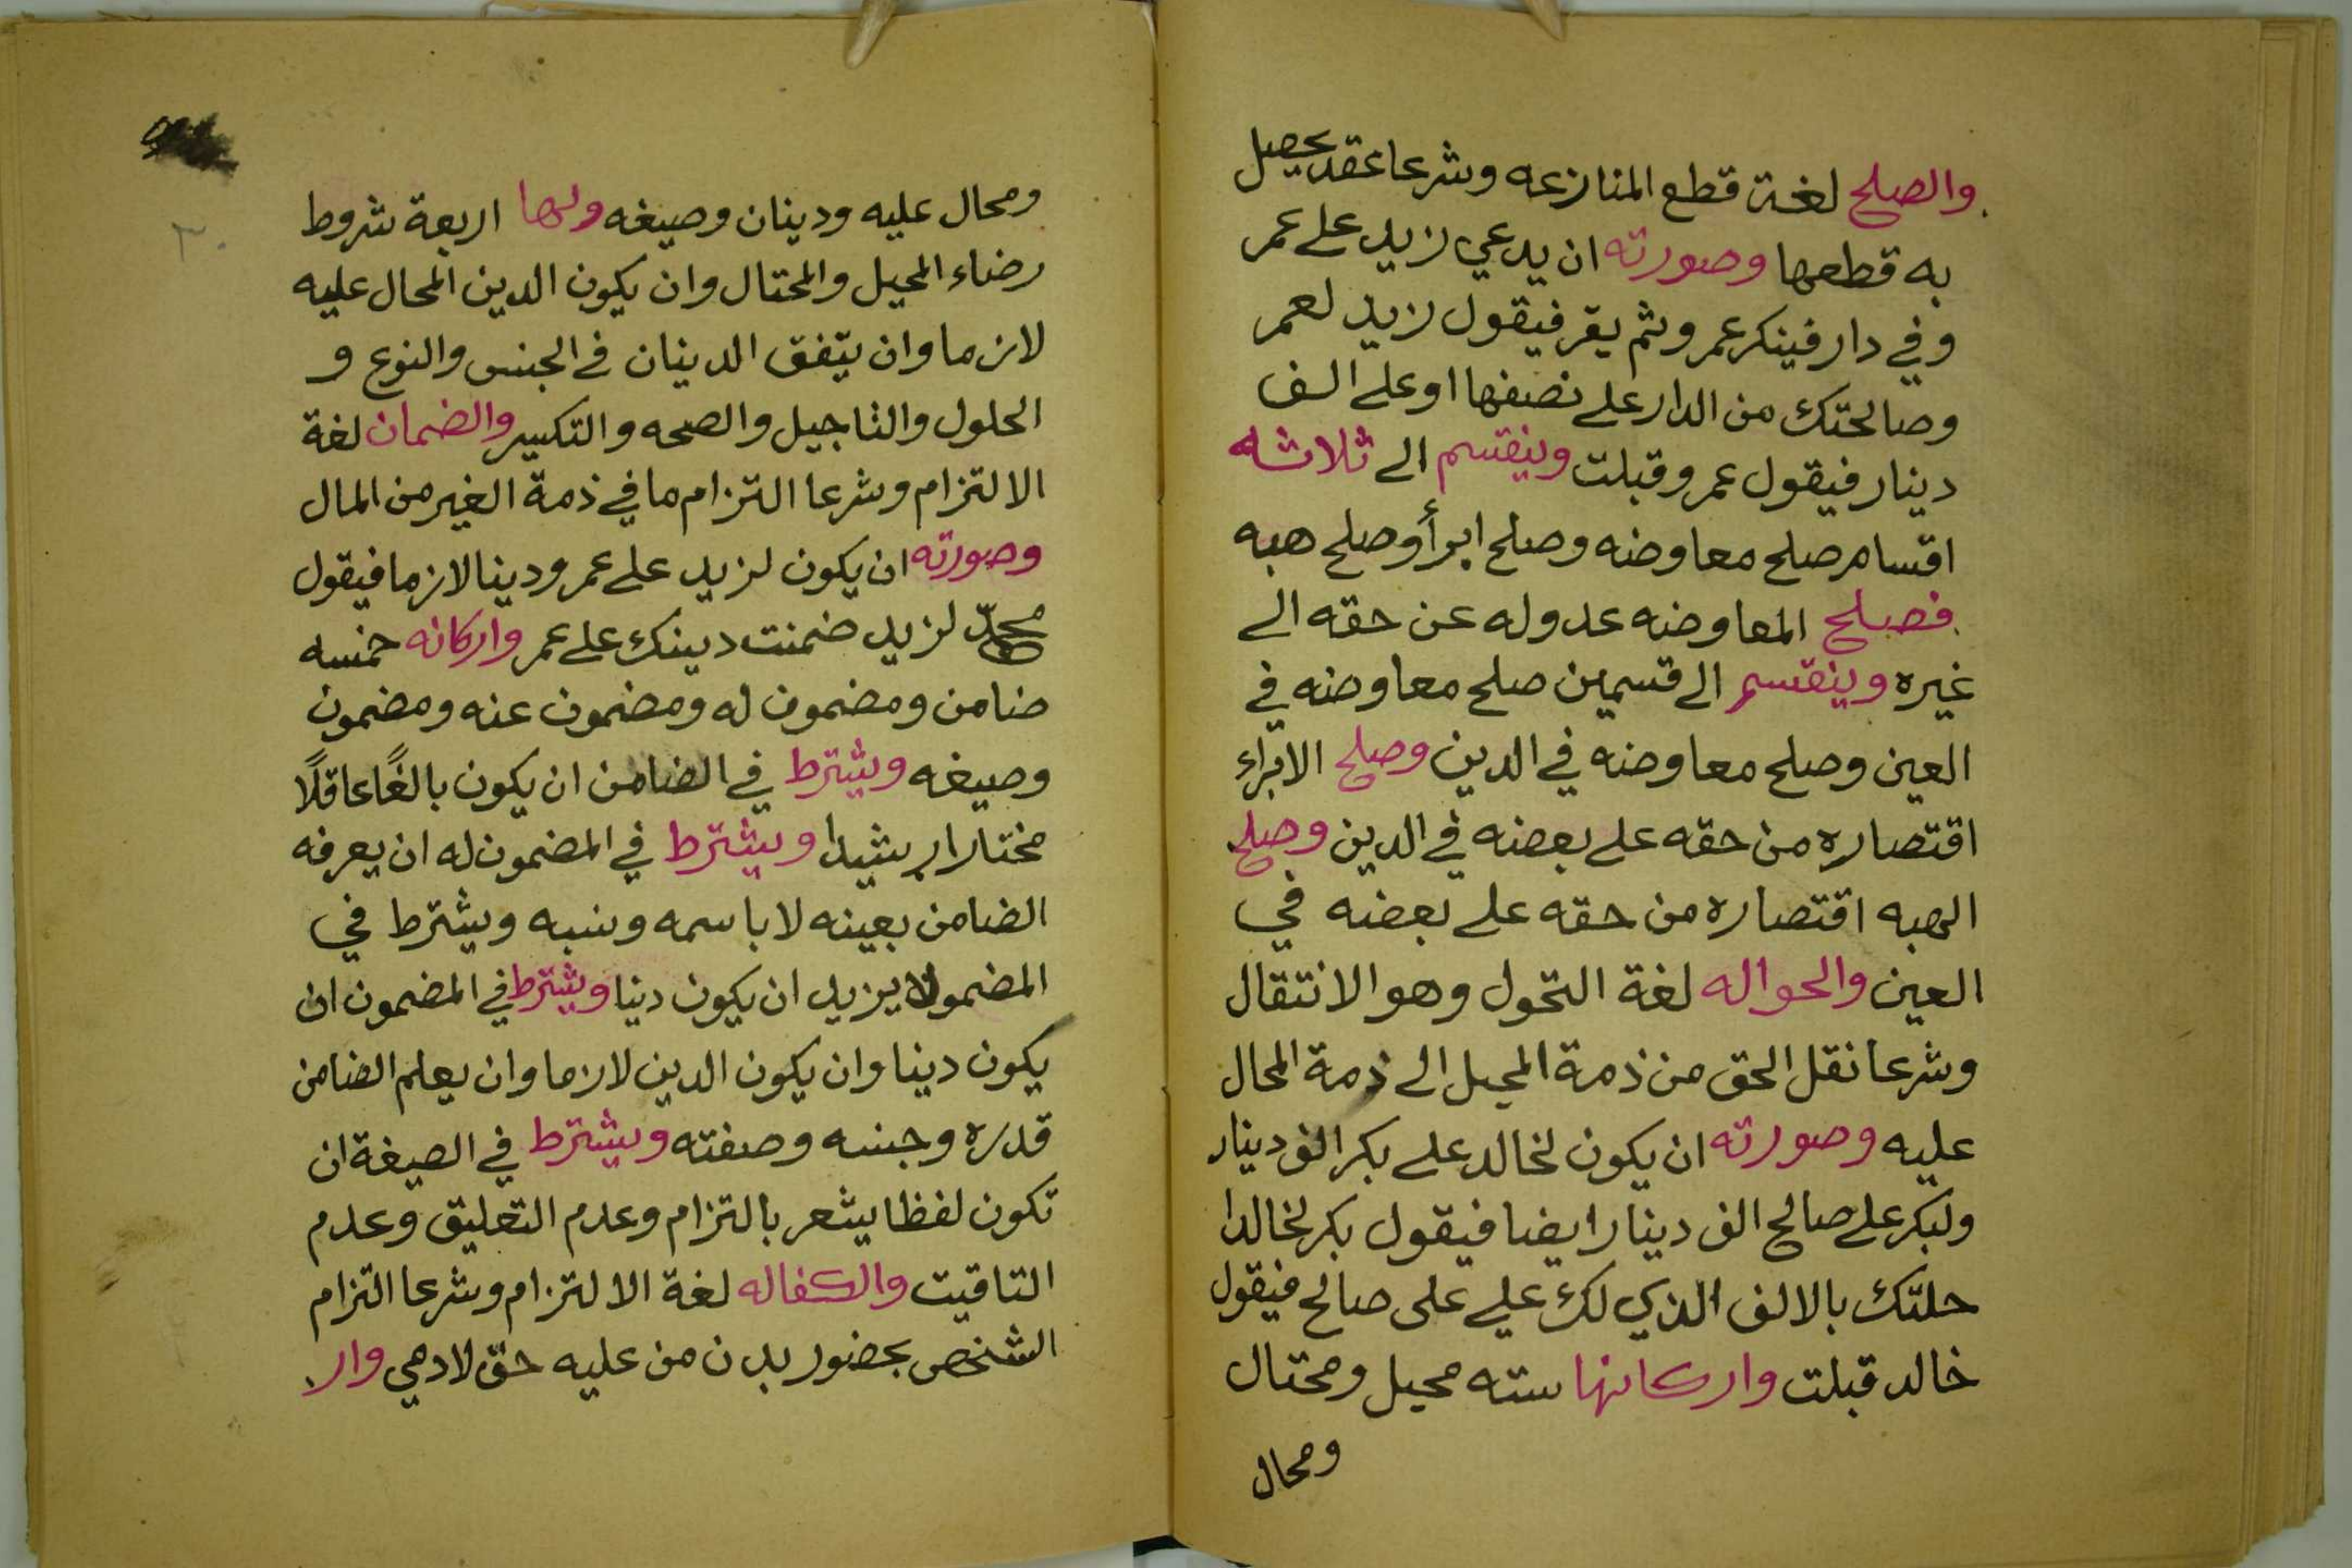 والصلح لغة قطع المنازعه وشرعا عقد يحصل
به قطعها وصورته ان يدعي زيد على عمر
وفي دار فينكر عمر وثم يقر فيقول زيد لعمر
وصالحتك من الدار على نصفها او على الف
دينار فيقول عمر وقبلت وينقسم الى ثلاثه
اقسام صلح معاوضه وصلح ابرأ وصلح هبه
فصلح المعاوضه عدوله عن حقه الى
غيره وينقسم الى قسمين صلح معاوضه في
العين وصلح معاوضه في الدين وصلح الابراء
اقتصاره من حقه على بعضه في الدين وصلح
الهبه اقتصاره من حقه على بعضه في
العين والحواله لغة التحول وهو الانتقال
وشرعا نقل الحق من ذمة المحيل الى ذمة المحال
عليه وصورته ان يكون لخالد على بكر الف دينار
ولبكر على صالح الف دينار ايضا فيقول بكر لخالدا
حلتك بالالف الذي لك علي على صالح فيقول
خالد قبلت واركانها سته محيل ومحتال
ومحال
٣٠
ومحال عليه ودينان وصيغه ولها اربعة شروط
رضاء المحيل والمحتال وان يكون الدين المحال عليه
لازما وان يتفق الدينان في الجنس والنوع و
الحلول والتاجيل والصحه والتكسير والضمان لغة
الالتزام وشرعا التزام ما في ذمة الغير من المال
وصورته ان يكون لزيد على عمر ودينا لازما فيقول
محمد لزيد ضمنت دينك على عمر واركانه خمسه
ضامن ومضمون له ومضمون عنه ومضمون
وصيغه ويشترط في الضامن ان يكون بالغًا عاقلًا
مختارا رشيدا ويشترط في المضمون له ان يعرفه
الضامن بعينه لا باسمه ونسبه ويشترط في
المضمو لا يزيد ان يكون دينا ويشترط في المضمون ان
يكون دينا وان يكون الدين لازما وان يعلم الضامن
قدره وجنسه وصفته ويشترط في الصيغة ان
تكون لفظا يشعر بالتزام وعدم التعليق وعدم
التاقيت والكفاله لغة الالتزام وشرعا التزام
الشخص بحضور بدن من عليه حق لادمي وار